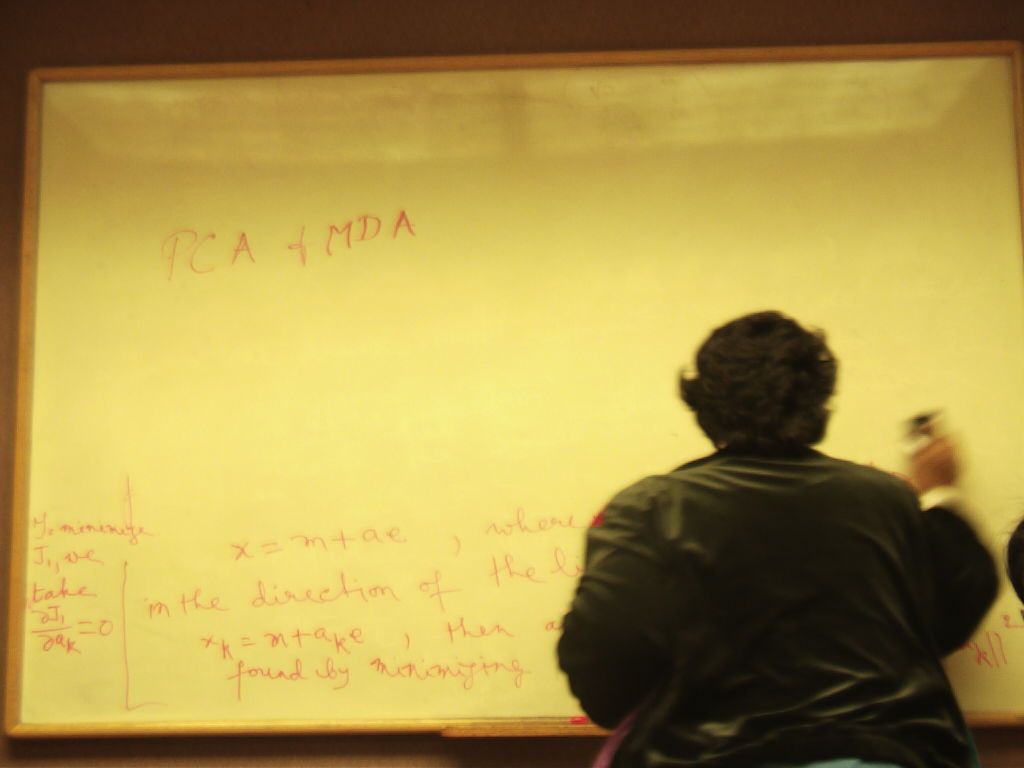 PCA & MDA
To minimize
J₁, we
take
∂J₁/∂aₖ = 0
x = m + ae , where
in the direction of the li
xₖ = m + aₖe , then a
found by minimizing